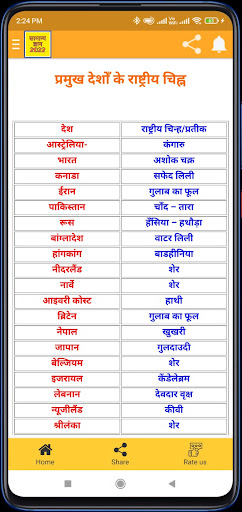 2:24 PM
सामान्य
ज्ञान
2022
प्रमुख देशों के राष्ट्रीय चिह्न
देश राष्ट्रीय चिन्ह/प्रतीक
आस्ट्रेलिया- कंगारु
भारत अशोक चक्र
कनाडा सफेद लिली
ईरान गुलाब का फूल
पाकिस्तान चाँद – तारा
रूस हँसिया – हथौड़ा
बांग्लादेश वाटर लिली
हांगकांग बाडहीनिया
नीदरलैंड शेर
नार्वे शेर
आइवरी कोस्ट हाथी
ब्रिटेन गुलाब का फूल
नेपाल खुखरी
जापान गुलदाउदी
बेल्जियम शेर
इजरायल केंडेलेब्रम
लेबनान देवदार वृक्ष
न्यूजीलैंड कीवी
श्रीलंका शेर
Home Share Rate us